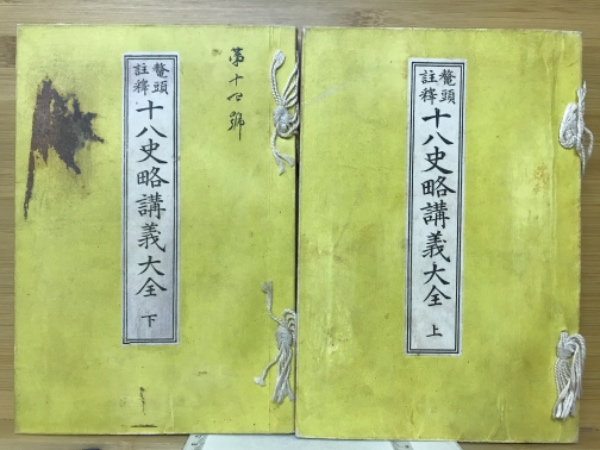 鼇頭
註釋
十八史略講義大全
上
鼇頭
註釋
十八史略講義大全
下
第十四號